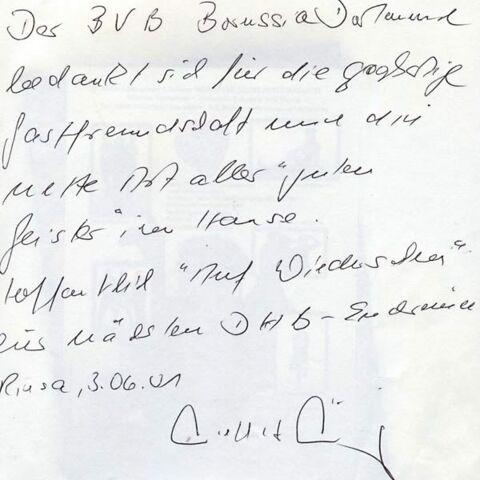 Der BVB Borussia Dortmund
bedankt sich für die großartige
Gastfreundschaft und die
nette Art aller "guten
Geister" im Hause.
Hoffentlich "Auf Wiedersehen"
bis nächsten DHB-Endrunde
Riesa, 3.06.01